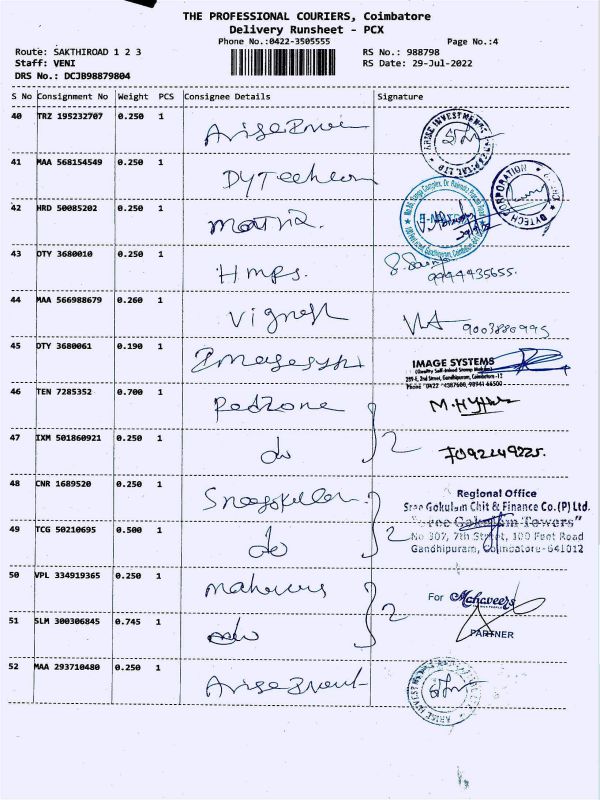 THE PROFESSIONAL COURIERS, Coimbatore
Delivery Runsheet - PCX
Phone No.:0422-3505555 Page No.:4
Route: SAKTHIROAD 1 2 3 RS No.: 988798
Staff: VENI RS Date: 29-Jul-2022
DRS No.: DCJB98879804
S No Consignment No Weight PCS Consignee Details Signature
40 TRZ 195232707 0.250 1
ARISE INVESTMENT
41 MAA 568154549 0.250 1 Dytechcon
DYTECH CORPORATION
42 HRD 50085202 0.250 1 Matrix
43 DTY 3680010 0.250 1 Hmps.
9944435655.
44 MAA 566988679 0.260 1 Vignesh
9003880995
45 DTY 3680061 0.190 1
IMAGE SYSTEMS
(Quality Self-Inked Stamp Makers)
2nd Street, Gandhipuram, Coimbatore -12
Phone : 0422 - 4387608, 98941 66500
46 TEN 7285352 0.700 1 Redzone
47 IXM 501860921 0.250 1 do 2
7092249225.
48 CNR 1689520 0.250 1
Regional Office
Sree Gokulam Chit & Finance Co.(P) Ltd.
"Sree Gokulam Towers"
49 TCG 50210695 0.500 1 do 2
No 307, 7th Street, 100 Feet Road
Gandhipuram, Coimbatore-641012
50 VPL 334919365 0.250 1
For Mahaveers
51 SLM 300306845 0.745 1 do 2
PARTNER
52 MAA 293710480 0.250 1